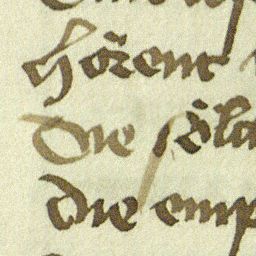 hörent
Die söla
die emp